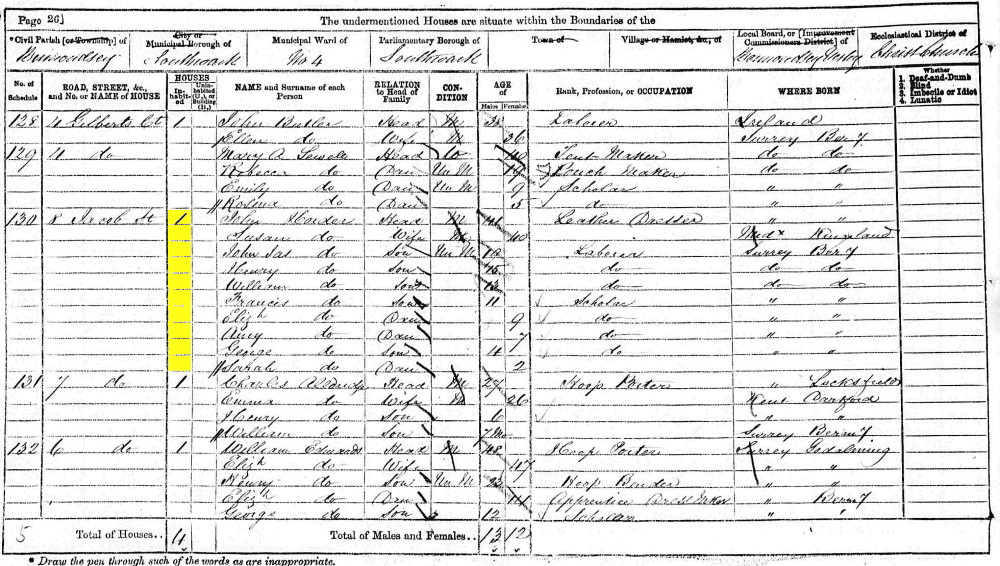 Page 26]
The undermentioned Houses are situate within the Boundaries of the
*Civil Parish [or Township] of City or Municipal Borough of Municipal Ward of Parliamentary Borough of Town of Village or Hamlet, &c., of Local Board, or [Improvement Commissioners District] of Ecclesiastical District of
Bermondsey Southwark No 4 Southwark Christ Church
No. of Schedule ROAD, STREET, &c., and No. or NAME of HOUSE HOUSES Inhabited Uninhabited (U.), or Building (B.) NAME and Surname of each Person RELATION to Head of Family CONDITION AGE of Males Females Rank, Profession, or OCCUPATION WHERE BORN Whether 1. Deaf-and-Dumb 2. Blind 3. Imbecile or Idiot 4. Lunatic
128 4 Gilberts Ct 1 John Butler Head M 38 Laborer Ireland
Ellen do Wife M 36 Surrey Bery
129 4 do Mary A Sewell Head Wo 40 Tent Maker do do
Rebecca do Dau Un M 19 Pouch Maker do do
Emily do Dau Un M 9 Scholar " "
do Dau 5 do " "
130 8 Jacob St 1 John Head M 41 Leather Dresser " "
Susan do Wife M 40 Midx Kingsland
John Jas do Son Un M 19 Laborer Surrey Bery
Henry do Son 15 do do do
William do Son 13 do do do
Francis do Son 11 Scholar " "
Elizh do Dau 9 do " "
Amy do Dau 7 do " "
George do Son 4 do " "
Sarah do Dau 2
131 7 do 1 Charles Head M 27 Hoop " Locksfields
Emma do Wife M 26 Kent Dartford
Henry do Son 6 " "
William do Son 7 Mo Surrey Bermy
132 6 do 1 William Edwards Head M 48 Hoop Porter Surrey Godalming
Elizh do Wife 47 " "
Henry do Son Un M 23 Hoop Bender " "
Elizh do Dau 14 Apprentice Dress Maker " Bermy
George do Son 12 Scholar " "
5 Total of Houses.. 4 Total of Males and Females.. 13 12
* Draw the pen through such of the words as are inappropriate.